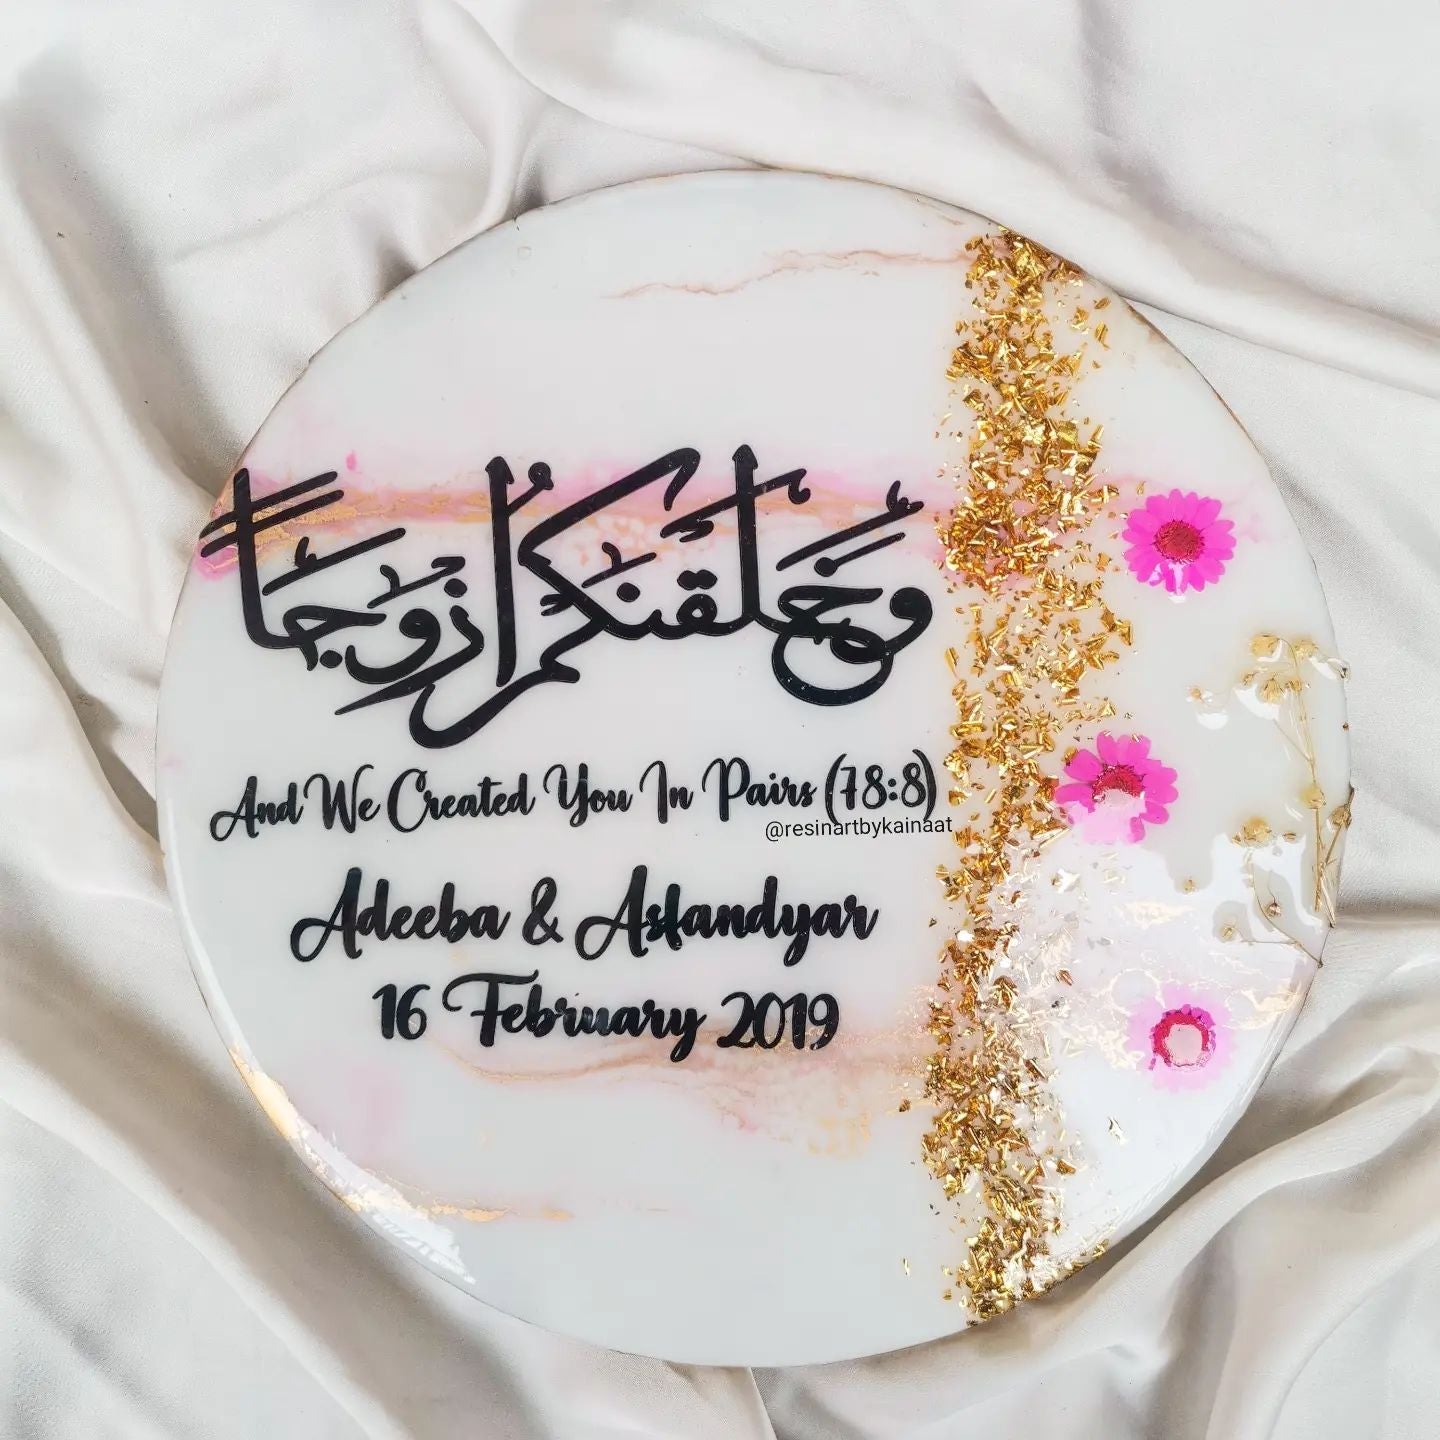 وخلقنكم ازوجا
And We Created You In Pairs (78:8)
@resinartbykainaat
Adeeba & Asfandyar
16 February 2019